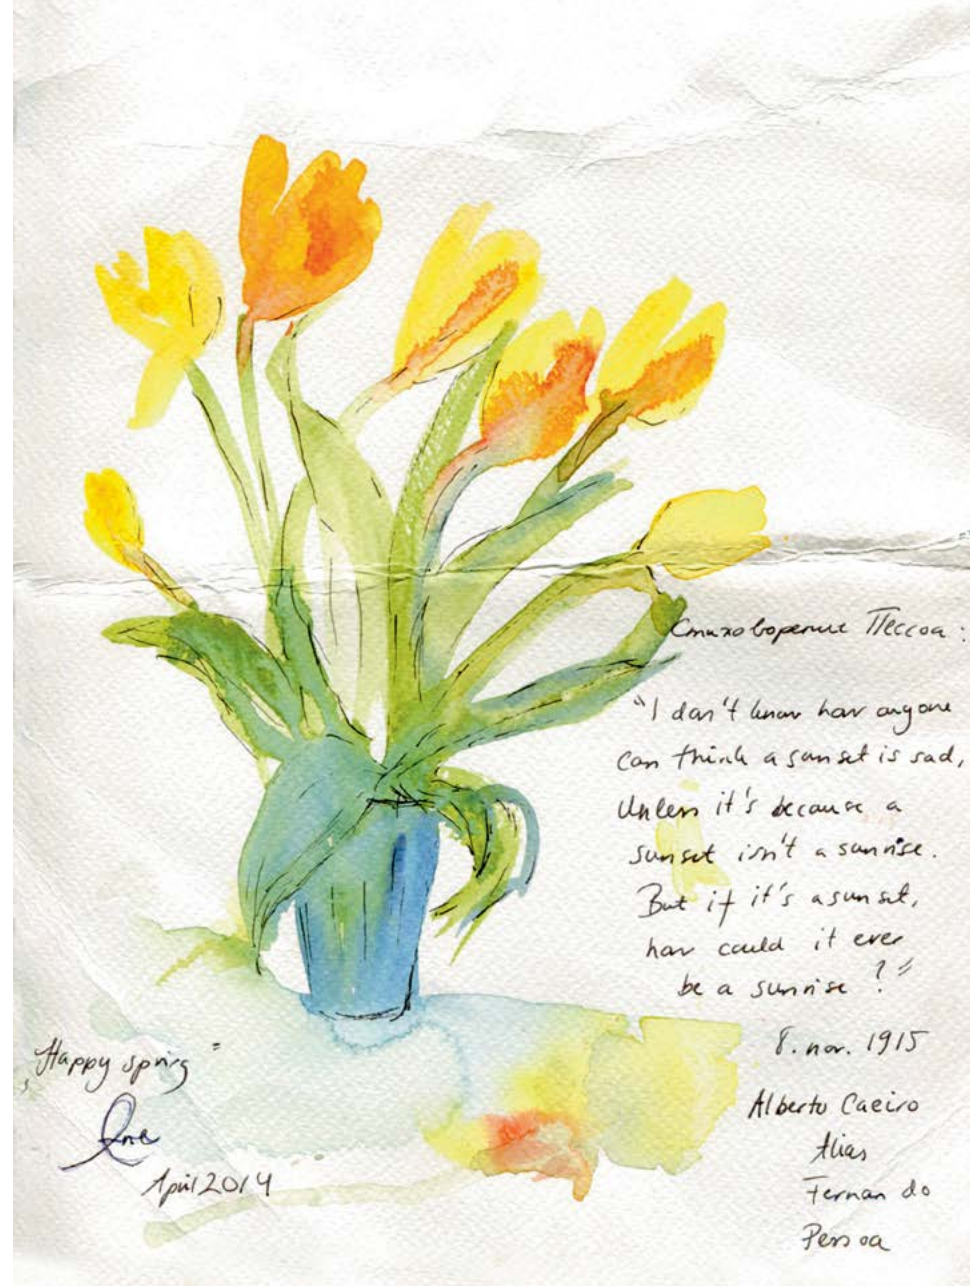 Стиховорение Пессоа:
"I don't know how anyone
can think a sunset is sad,
Unless it's because a
sunset isn't a sunrise.
But if it's a sunset,
how could it ever
be a sunrise?"
8. nov. 1915
Alberto Caeiro
Alias
Fernando
Pessoa
„Happy spring"
April 2014